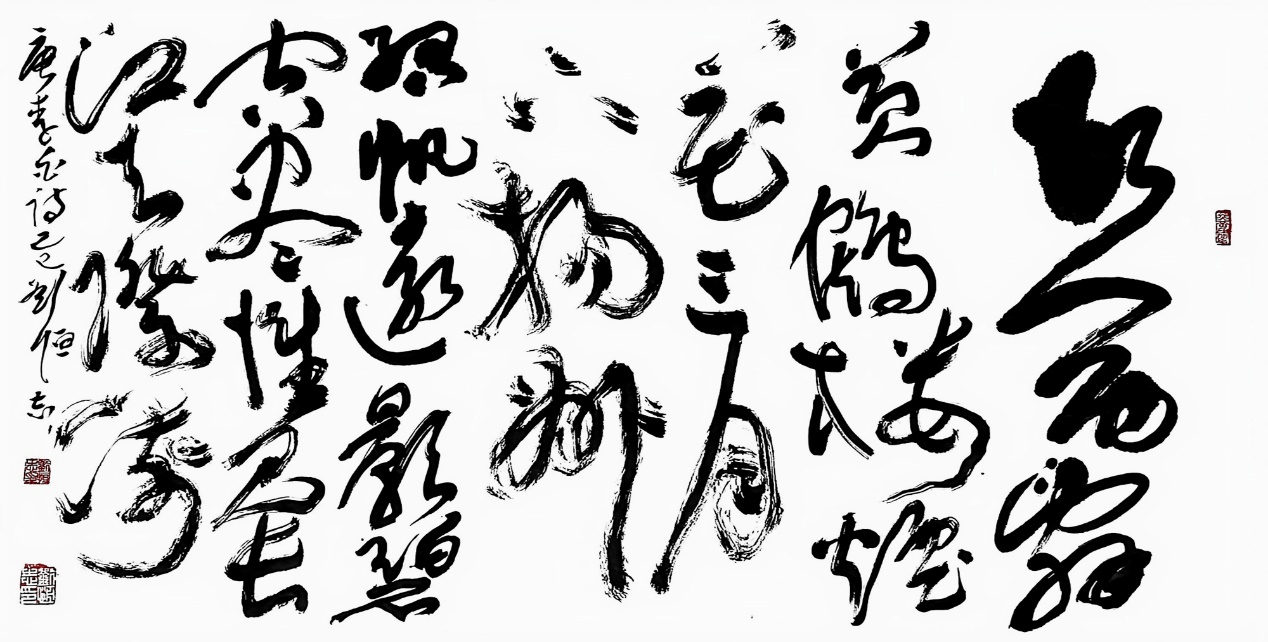 故人西辭
黄鶴樓煙
花三月
下揚州
孤帆遠影碧
空尽惟見長
江天際流
唐李白詩乙巳劉恒